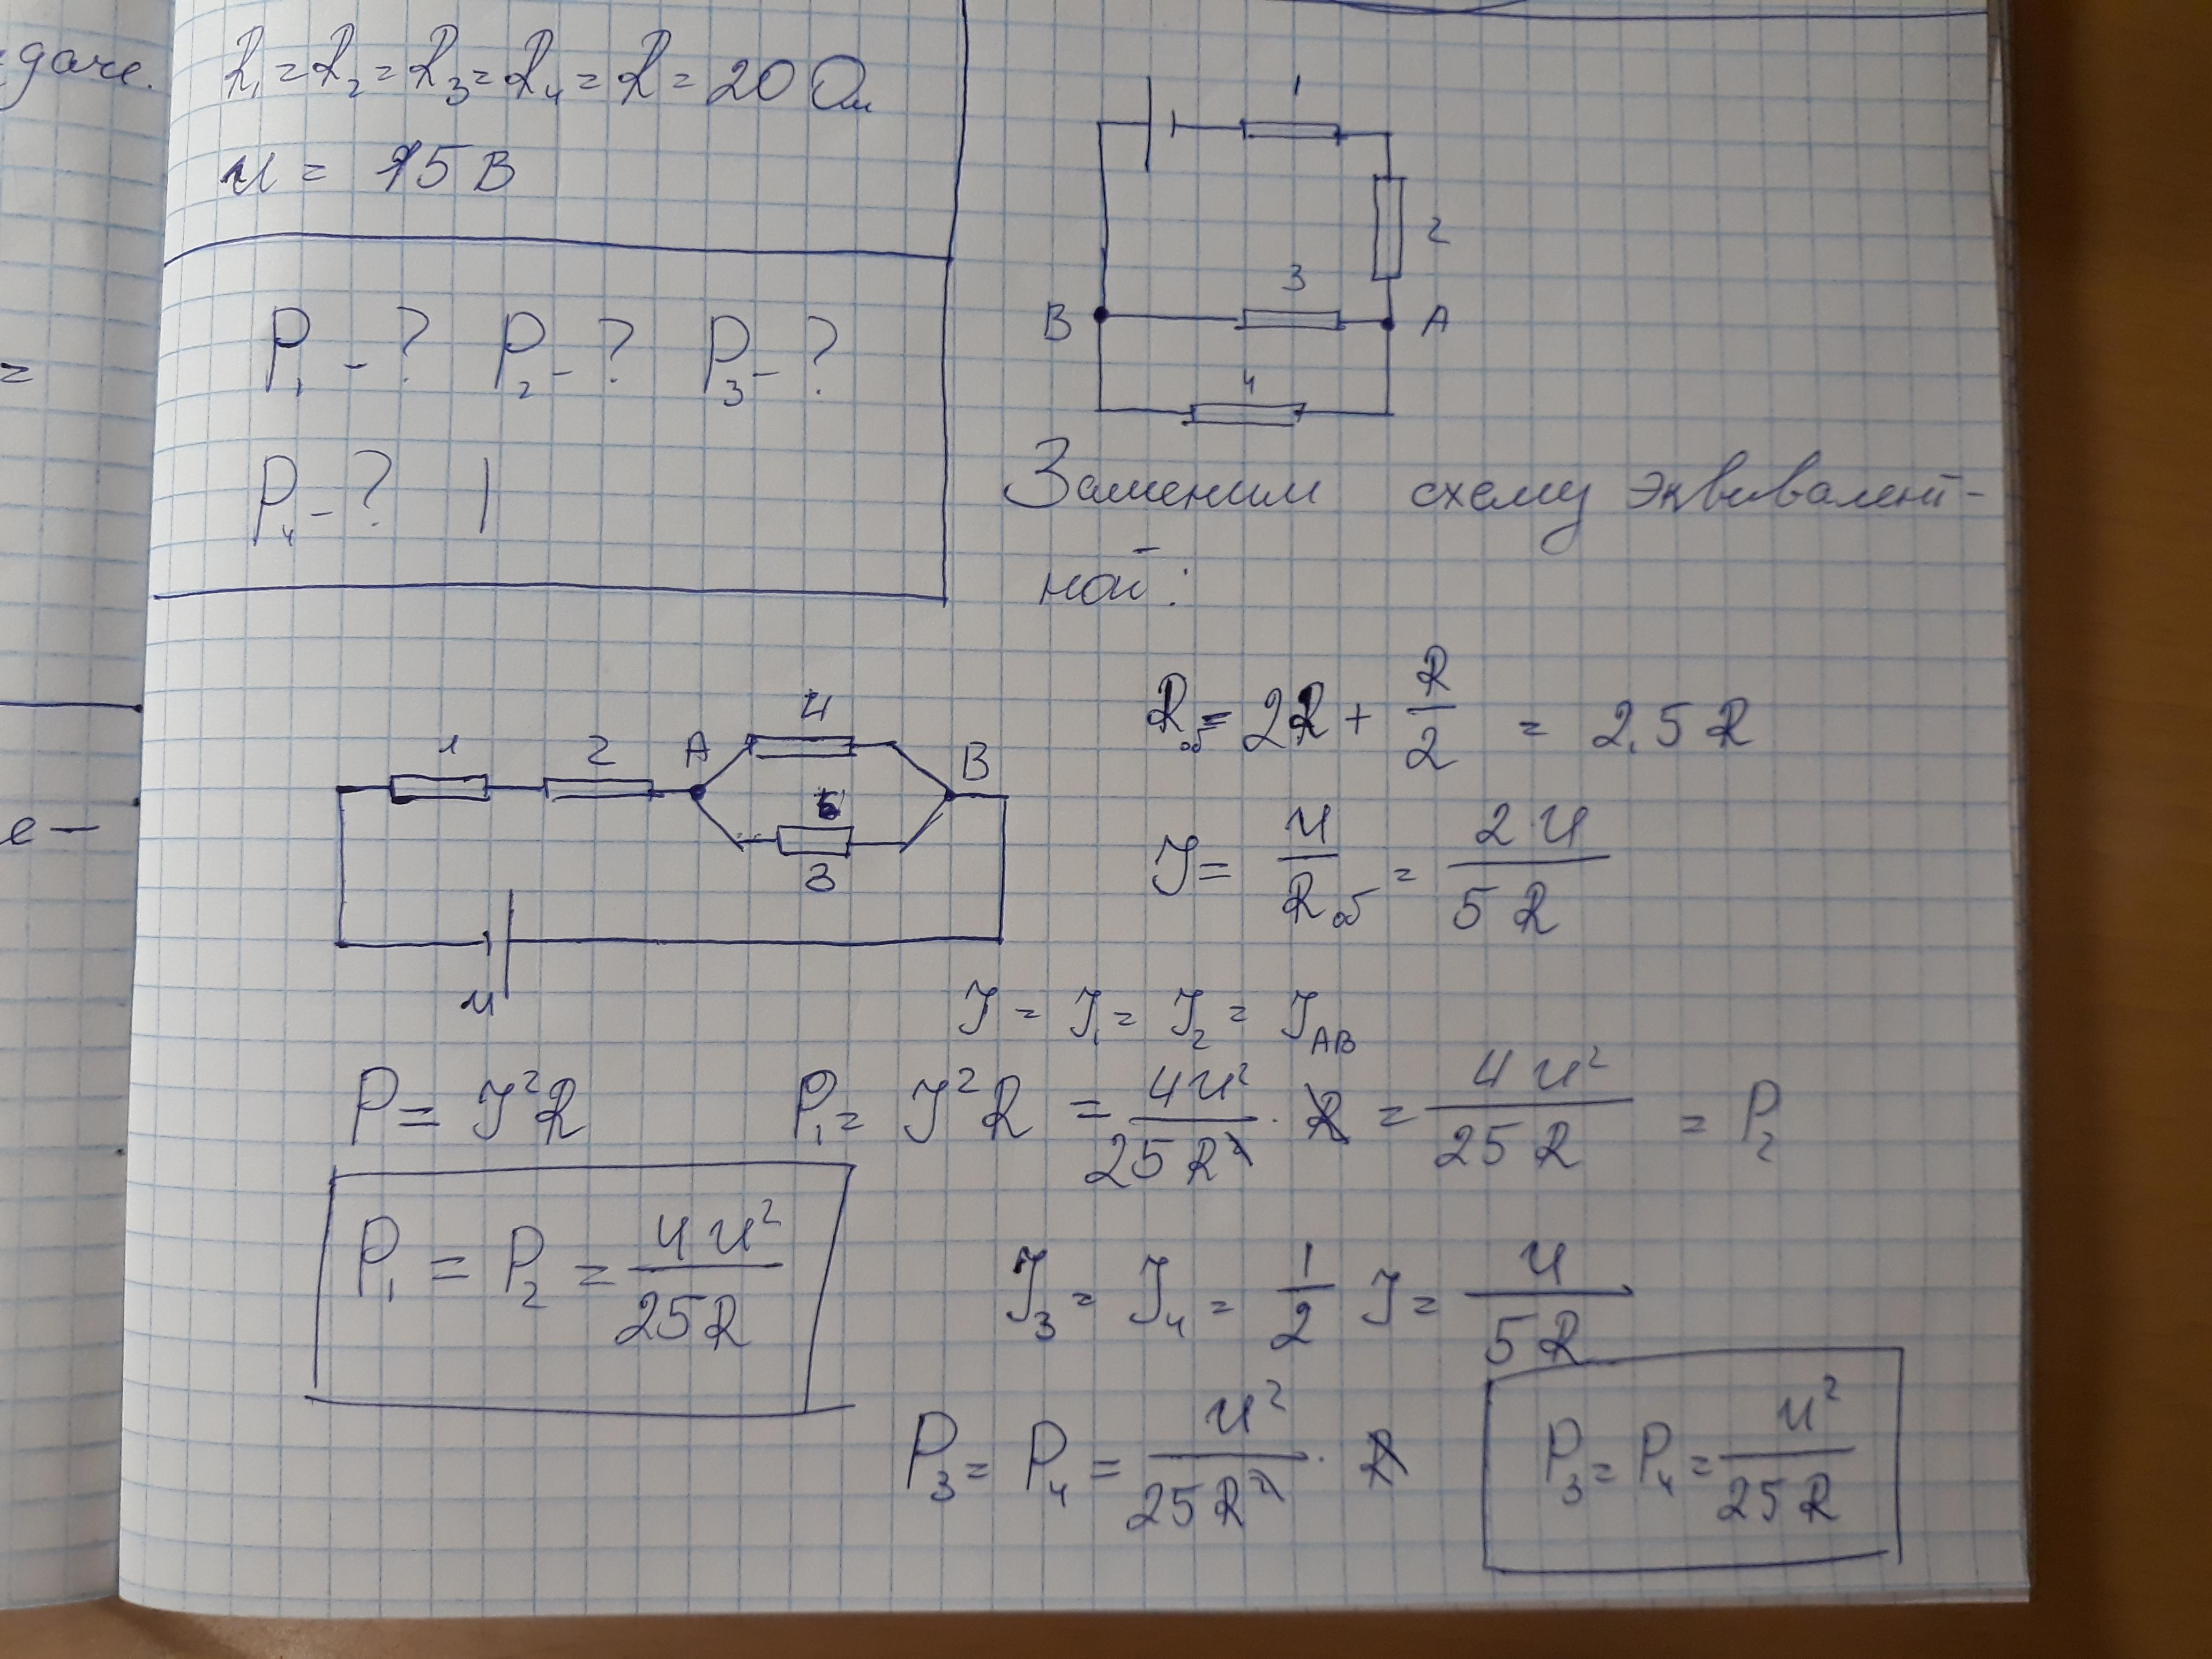 даче.
=
е —
R₁ = R₂ = R₃ = R₄ = R = 20 Ом
U = 15 В
P₁ - ? P₂ - ? P₃ - ?
P₄ - ?
1
2
3
B A
4
Заменим схему эквивалент-
ной:
1 2 A 4 B
3
U
R об = 2R + R/2 = 2,5 R
I = U/R об = 2U/5R
I = I₁ = I₂ = I AB
P = I²R P₁ = I²R = 4U²/25R² · R = 4U²/25R = P₂
P₁ = P₂ = 4U²/25R
I₃ = I₄ = 1/2 I = U/5R
P₃ = P₄ = U²/25R² · R
P₃ = P₄ = U²/25R